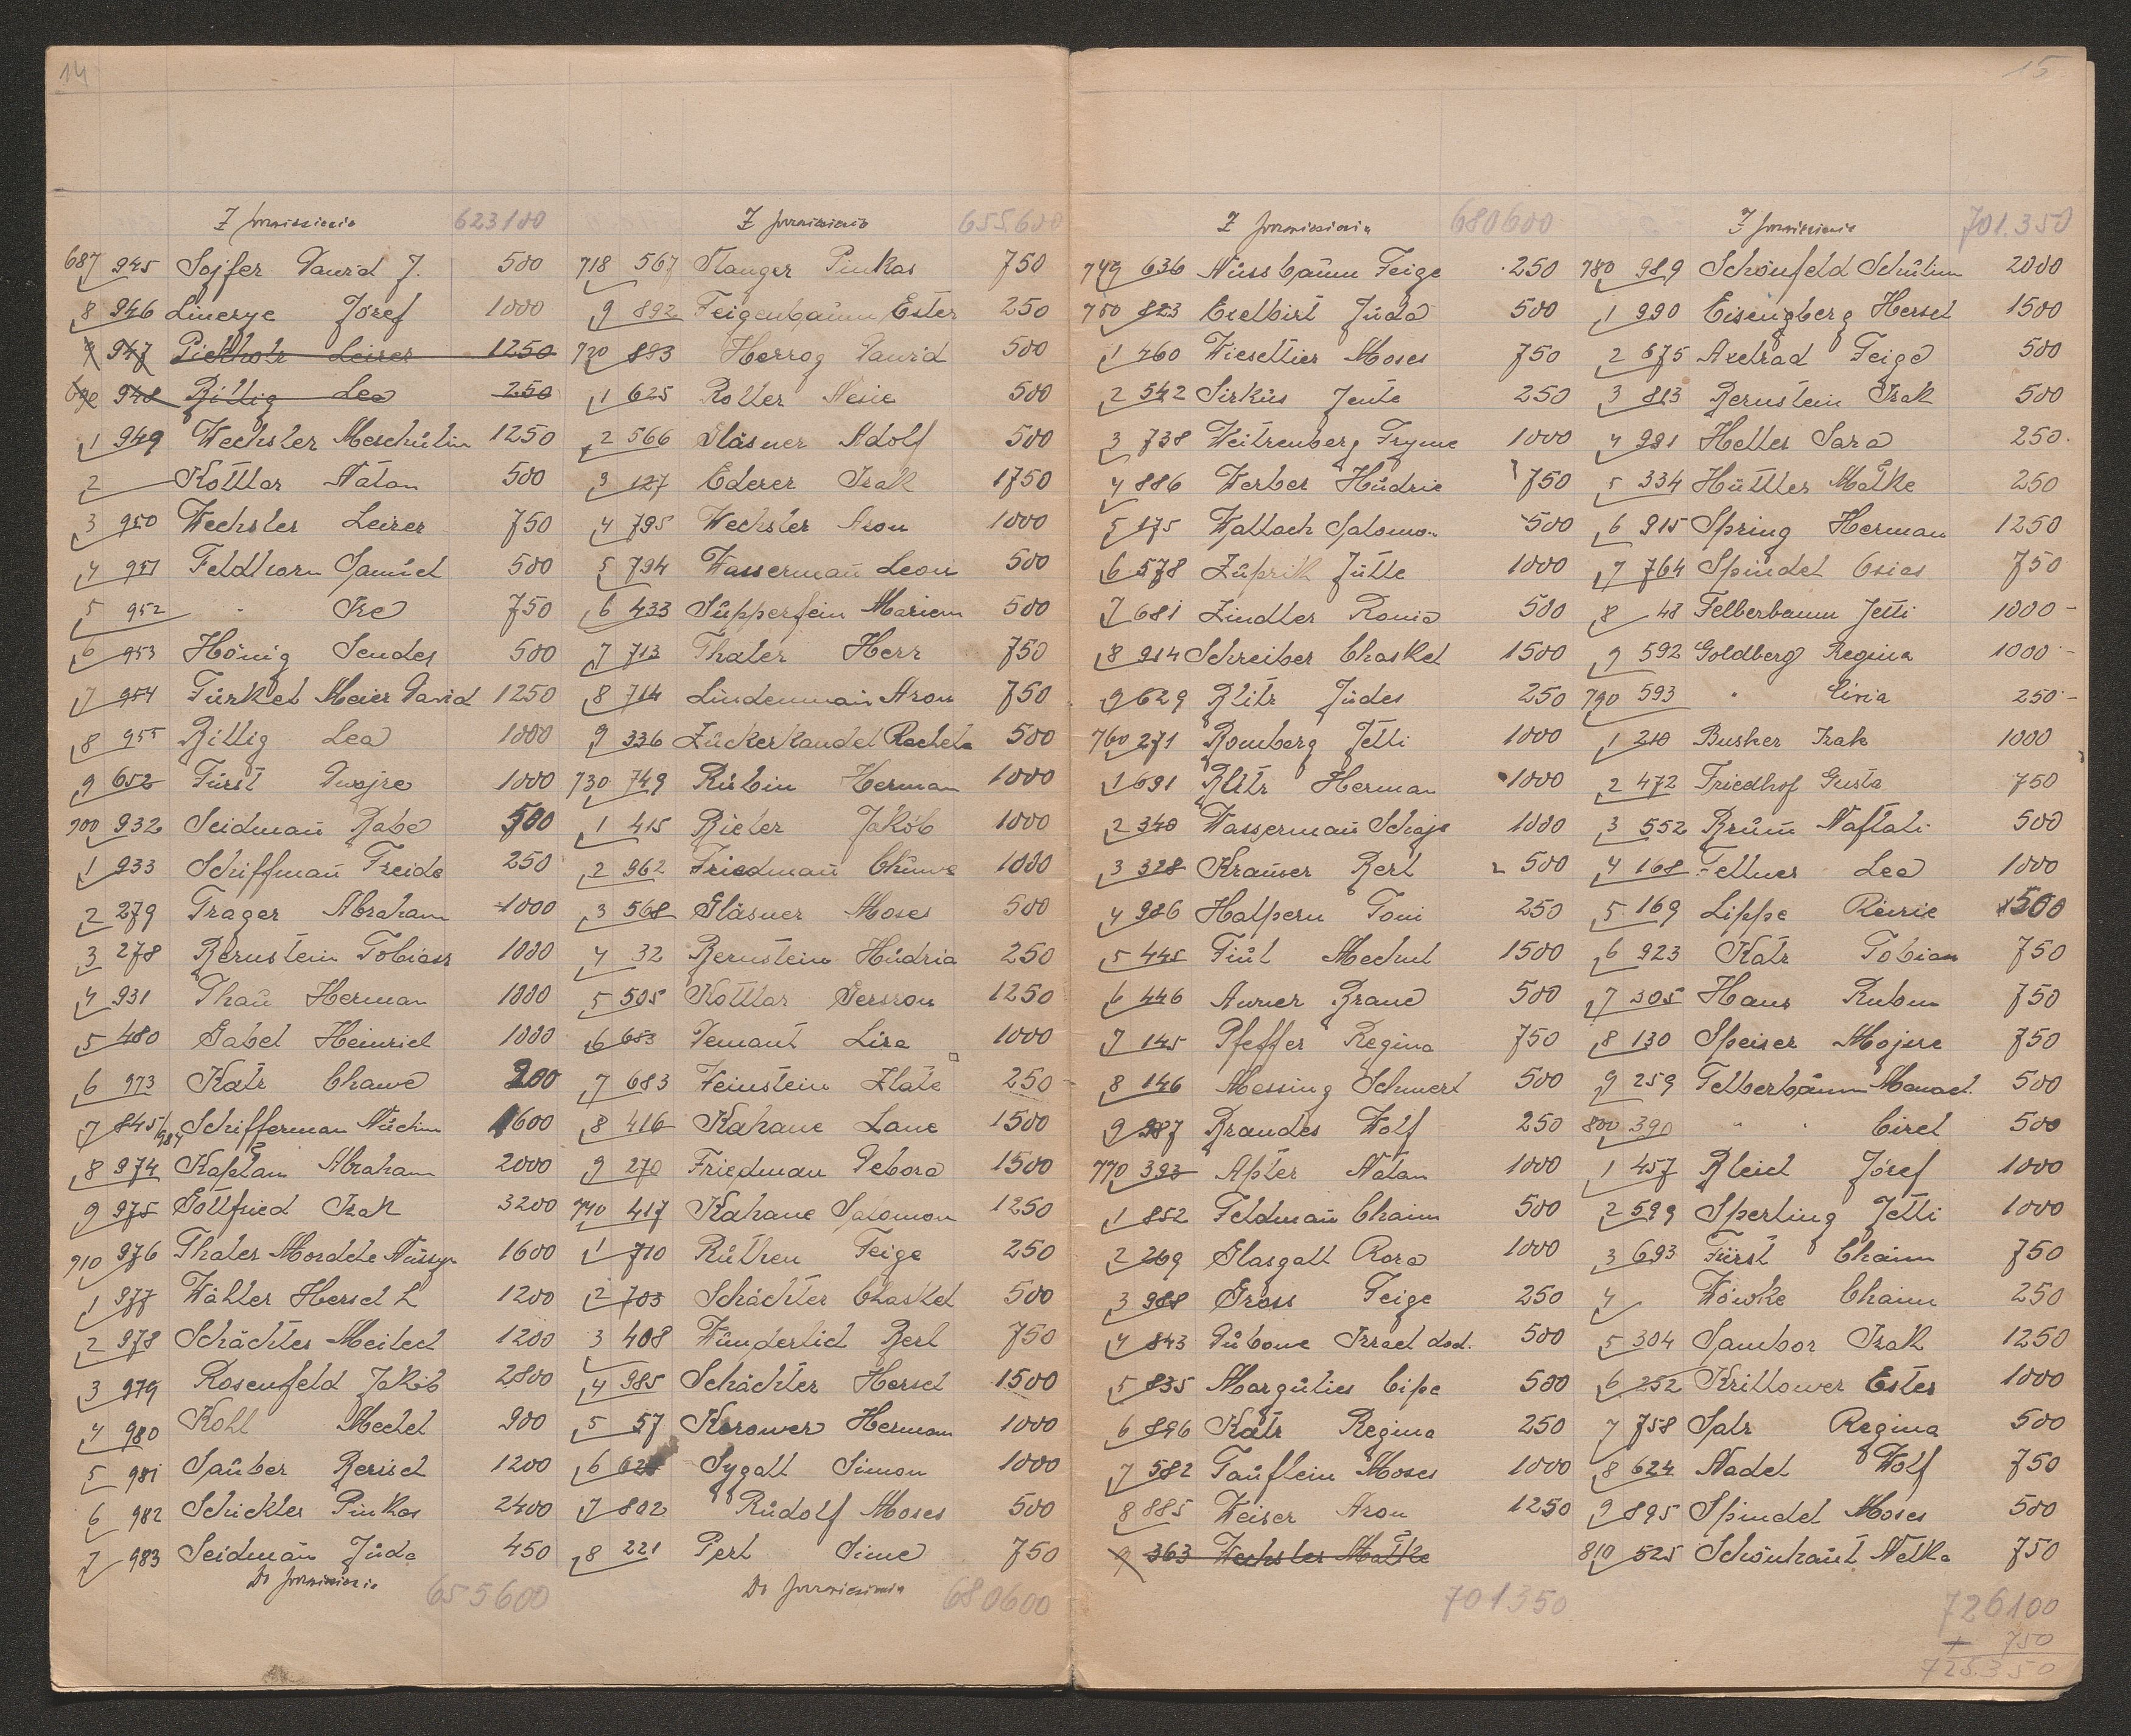 14
Z przeniesienia 623100
687 945 Sojfer Dawid J. 500
8 946 Linerye Josef 1000
9 947 Pickholz Leizer 1250
690 948 Billig Lea 250
1 949 Wechsler Meschulim 1250
2 Kottlar Natan 500
3 950 Wechsler Leizer 750
4 951 Feldhorn Samuel 500
5 952 " Ire 750
6 953 Hönig Sender 500
7 954 Türkel Meier Dawid 1250
8 955 Billig Lea 1000
9 652 Fürst Dwojre 1000
700 932 Seidmann Babe 500
1 933 Schiffmann Freide 250
2 279 Trager Abraham 1000
3 278 Bernstein Tobiasz 1000
4 931 Thau Herman 1000
5 480 Gabel Heinrich 1000
6 973 Katz Chawe 200
7 845/984 Schifferman Nuchim 1600
8 974 Kaplan Abraham 2000
9 975 Gottfried Izak 3200
710 976 Thaler Mordche Nussyn 1600
1 977 Wahler Hersch L 1200
2 978 Schächter Meilech 1200
3 979 Rosenfeld Jakób 2800
4 980 Kohl Mechel 900
5 981 Sauber Berisch 1200
6 982 Schickler Pinkas 2400
7 983 Seidman Juda 450
Do przeniesienia 655600
Z przeniesienia 655600
718 567 Stanger Pinkas 750
9 892 Feigenbaum Ester 250
720 893 Herzog Dawid 500
1 625 Roller Nesie 500
2 566 Gläsner Adolf 500
3 127 Ederer Izak 1750
4 795 Wechsler Aron 1000
5 794 Wassermann Leon 500
6 433 Süpperfein Mariem 500
7 713 Thaler Herz 750
8 714 Lindenmain Aron 750
9 336 Zuckerkandel Rachela 500
730 749 Rubin Herman 1000
1 415 Bieler Jakób 1000
2 962 Friedmann Chuwe 1000
3 568 Gläsner Moses 500
4 32 Bernstein Hudria 250
5 505 Kottlar Gerszon 1250
6 653 Demant Lize 1000
7 683 Feinstein Zlate 250
8 416 Kahane Lane 1500
9 270 Friedman Debora 1500
740 417 Kahane Salomon 1250
1 710 Ruthen Feige 250
2 703 Schächter Chaskel 500
3 408 Wunderlich Berl 750
4 985 Schächter Hersch 1500
5 57 Korower Herman 1000
6 Sygall Simon 1000
7 802 Rudolf Moses 500
8 221 Perl Sime 750
Do przeniesienia 680600
15
Z przeniesienia 680600
749 636 Nussbaum Feige 250
750 823 Eselbirt Juda 500
1 460 Wieseltier Moses 750
2 542 Sirkus Jente 250
3 738 Weitzenberg Fryme 1000
4 886 Werber Hudzie 750
5 175 Wallach Salomon 500
6 578 Zuprik Jutte 1000
7 681 Zindler Ronia 500
8 914 Schreiber Chaskel 1500
9 629 Blitz Judes 250
760 271 Romberg Jetti 1000
1 691 Blitz Herman 1000
2 340 Wassermann Schaje 1000
3 328 Krauser Berl 500
4 986 Halpern Toni 250
5 445 Fiül Mechel 1500
6 446 Auner Brane 500
7 145 Pfeffer Regina 750
8 146 Messing Schmerl 500
9 987 Brandes Wolf 250
770 393 Apter Natan 1000
1 852 Feldmann Chaim 500
2 269 Glasgall Roza 1000
3 988 Gross Feige 250
4 843 Dubowe Izrael dod. 500
5 835 Margulies Cipe 500
6 896 Katz Regina 250
7 582 Tauflein Moses 1000
8 885 Weiser Aron 1250
9 363 Wechsler Matke
701350
Z przeniesienia 701.350
780 989 Schönfeld Schulim 2000
1 990 Eisenberg Hersch 1500
2 675 Axelrad Feige 500
3 813 Bernstein Izak 500
4 991 Heller Sara 250
5 334 Hüttler Matke 250
6 915 Spring Herman 1250
7 764 Spindel Osias 750
8 48 Felberbaum Jetti 1000 -
9 592 Goldberg Regina 1000 -
790 593 " Civia 250 -
1 210 Busker Izak 1000
2 472 Friedhof Gusta 750
3 552 Brumm Naftali 500
4 168 Fellner Lea 1000
5 169 Lippe Reizie 500
6 923 Katz Tobias 750
7 305 Haus Rubin 750
8 130 Speiser Mojsze 750
9 259 Felberbaum Manach. 500
800 390 " " Cirel 500
1 457 Bleich Józef 1000
2 599 Sperling Jetti 1000
3 693 Fürst Chaim 750
4 Wowke Chaim 250
5 304 Sambor Izak 1250
6 252 Krittower Ester 1000
7 758 Salz Regina 500
8 624 Nadel Wolf 750
9 895 Spindel Moses 500
810 525 Schönhaut Nelka 750
726100
750
725.350